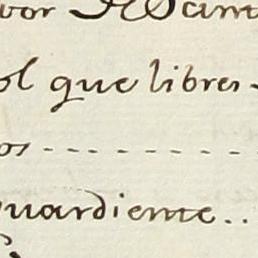 vor
ol que libres
os - - - - - - - -
uardiente..